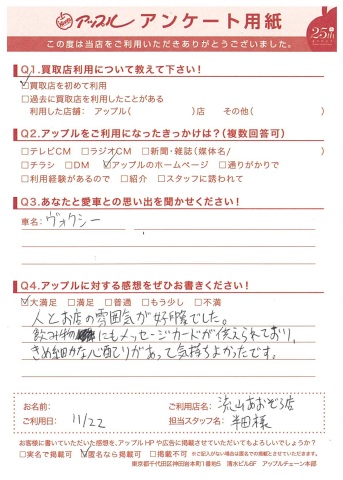 アップル アンケート用紙
25th
この度は当店をご利用いただきありがとうございました。
Q1.買取店利用について教えて下さい!
☑買取店を初めて利用
□過去に買取店を利用したことがある
利用した店舗: アップル( )店 その他( )
Q2.アップルをご利用になったきっかけは?(複数回答可)
□テレビCM □ラジオCM □新聞・雑誌(媒体名/ )
□チラシ □DM ☑アップルのホームページ □通りがかりで
□利用経験があるので □紹介 □スタッフに誘われて
Q3.あなたと愛車との思い出を聞かせください!
車名: ヴォクシー
Q4.アップルに対する感想をぜひお書きください!
☑大満足 □満足 □普通 □もう少し □不満
人とお店の雰囲気が好印象でした。
飲み物にもメッセージカードが伝えられており、
きめ細かな心配りがあって気持ちよかったです。
お名前: ご利用店名: 流山おおぞら店
ご利用日: 11/22 担当スタッフ名: 半田様
お客様に書いていただいた感想を、アップルHPや広告に掲載させていただいてもよろしいでしょうか?
□実名で掲載可 ☑匿名なら掲載可 □掲載不可 ※ご記入がない場合は匿名での掲載とさせていただきます。
東京都千代田区神田岩本町1番地5 清水ビル6F アップルチェーン本部